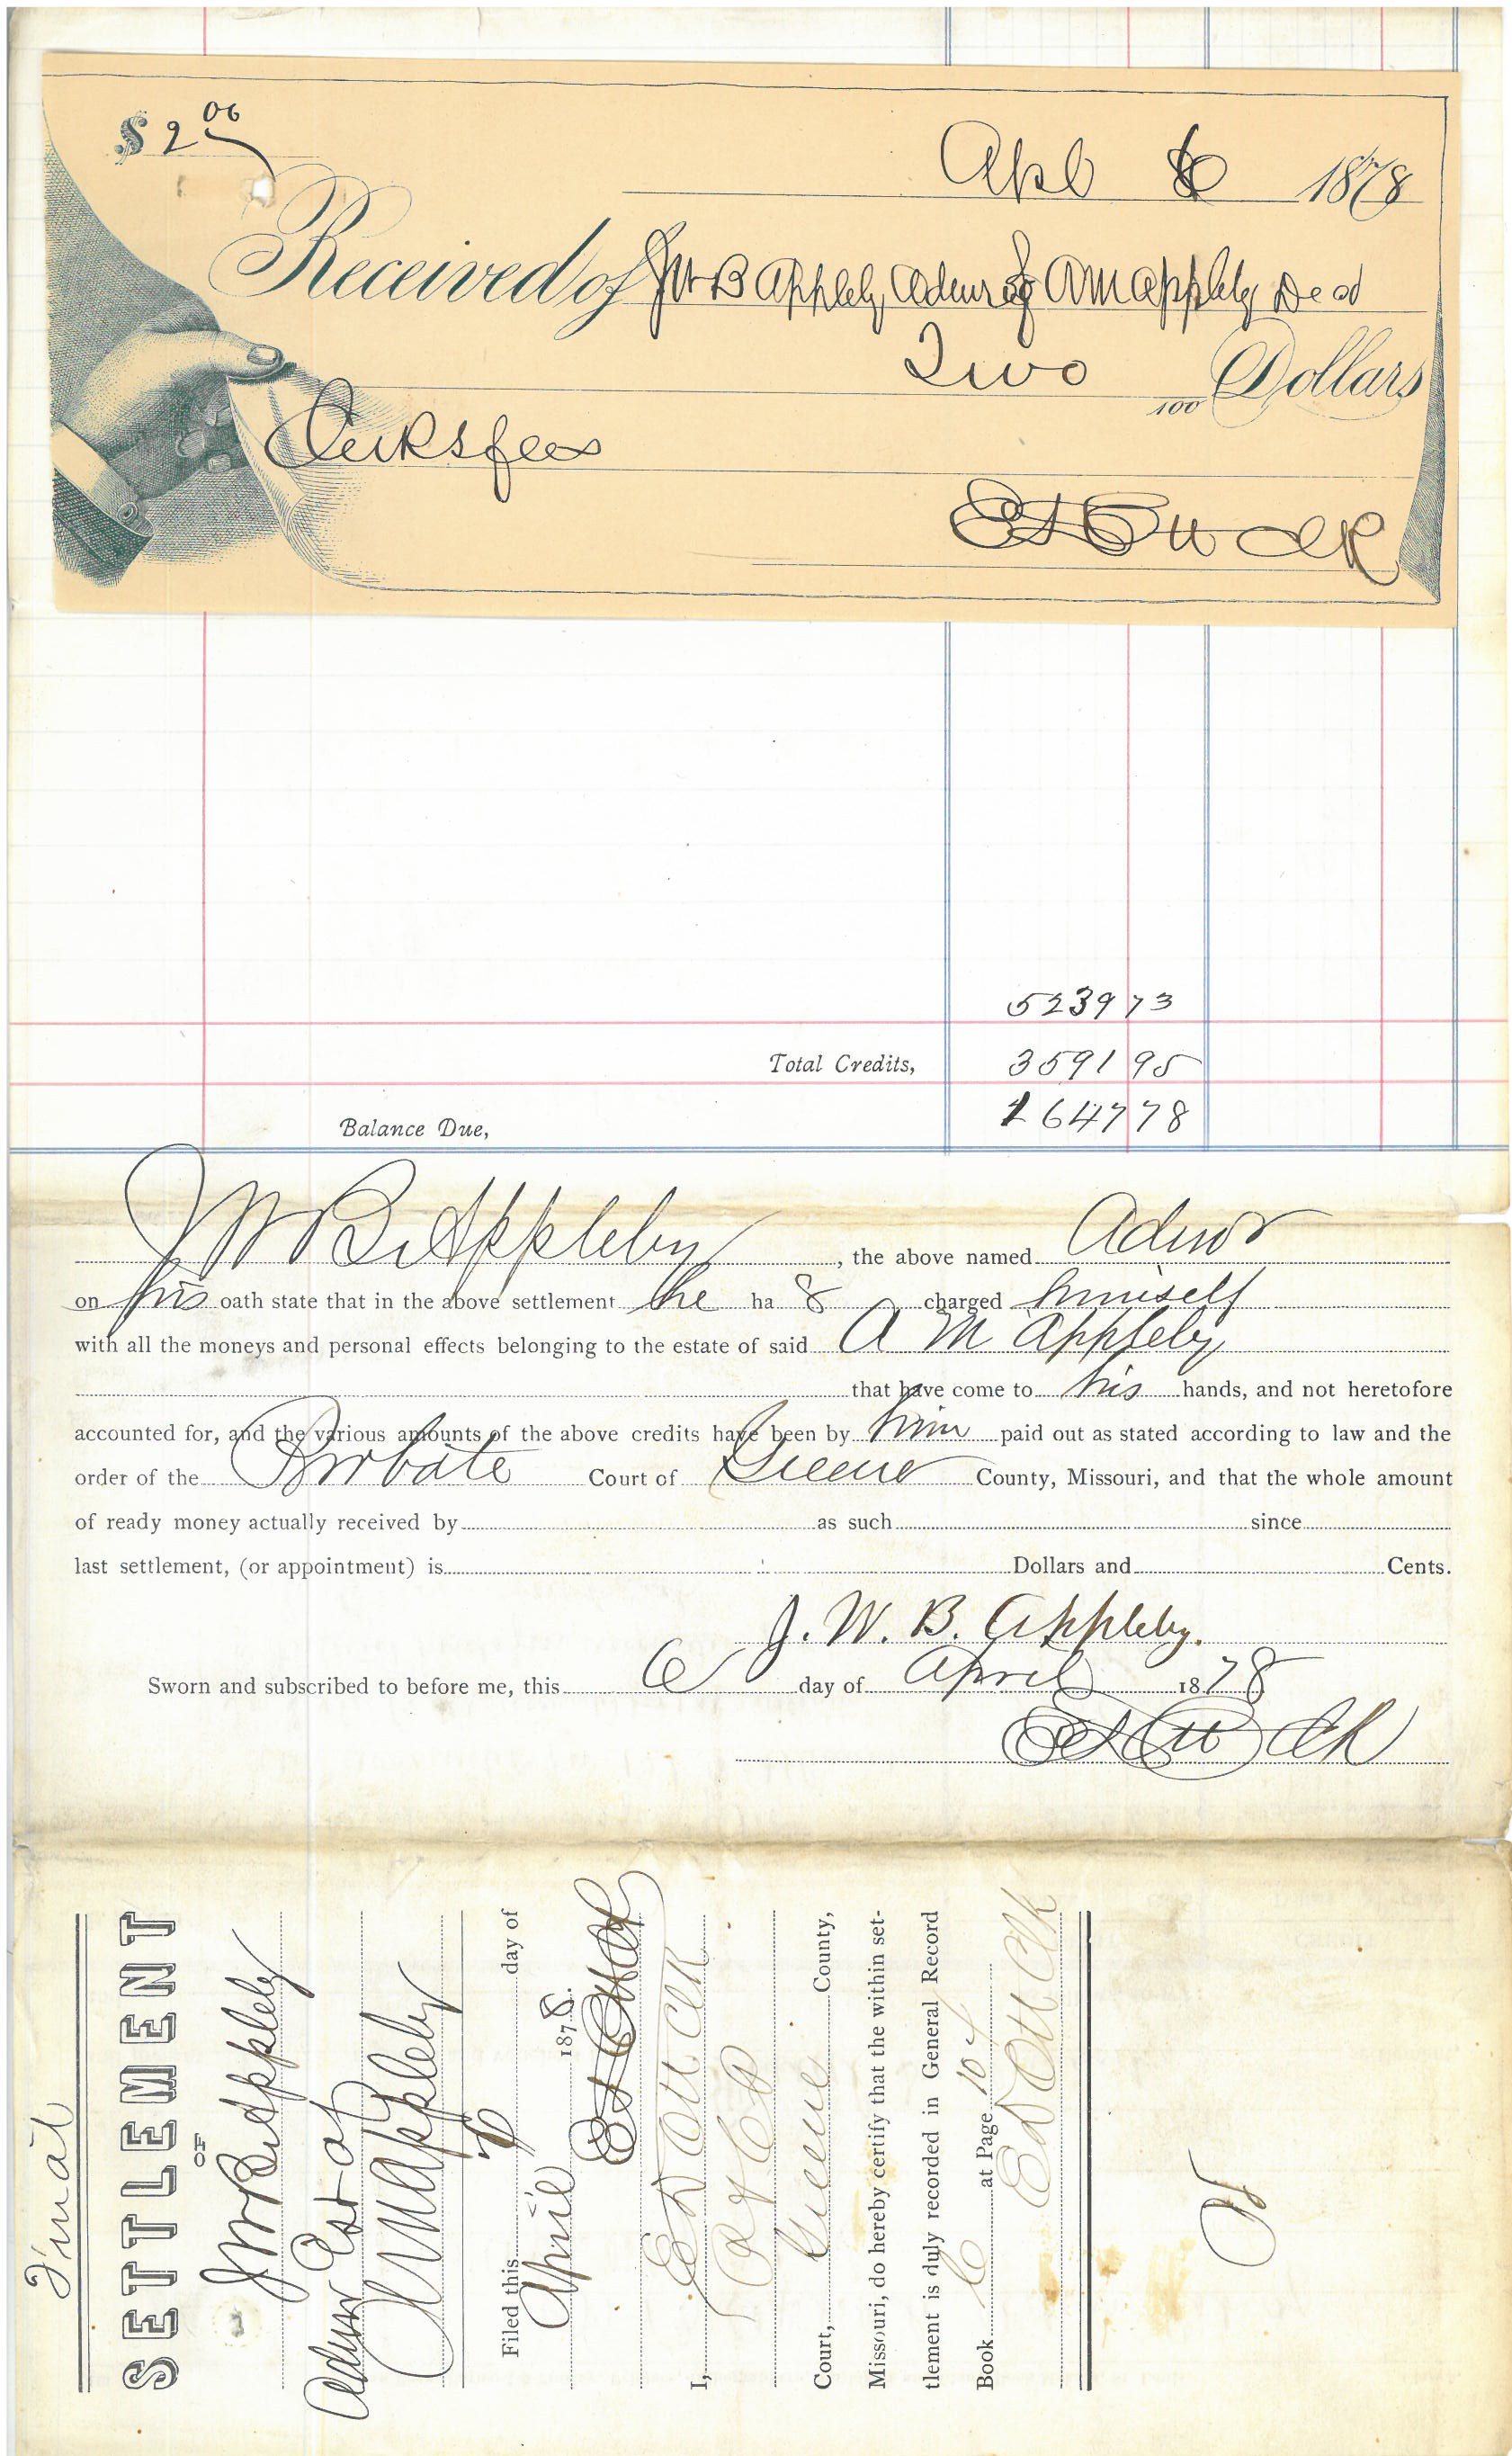 $ 2 00
Apl 6 1878
Received of J W B Appleby Admr of A M Appleby Decd
Two 100 Dollars
Clerks fees
E D Ott Clk
5239 73
Total Credits, 3591 95
Balance Due, 1647 78
J W B Appleby, the above named Admr
on his oath state that in the above settlement he ha s charged himself
with all the moneys and personal effects belonging to the estate of said A M Appleby
that have come to his hands, and not heretofore
accounted for, and the various amounts of the above credits have been by him paid out as stated according to law and the
order of the Probate Court of Greene County, Missouri, and that the whole amount
of ready money actually received by as such since
last settlement, (or appointment) is Dollars and Cents.
J. W. B. Appleby.
Sworn and subscribed to before me, this 6 day of April 1878
E D Ott Clk
Final
SETTLEMENT
OF
J W B Appleby
Admr Est of
A M Appleby
Filed this 6 day of
April 1878.
E D Ott Clk
I, E D Ott Clk
Court, Greene County,
Missouri, do hereby certify that the within set-
tlement is duly recorded in General Record
Book C at Page 104
E D Ott Clk